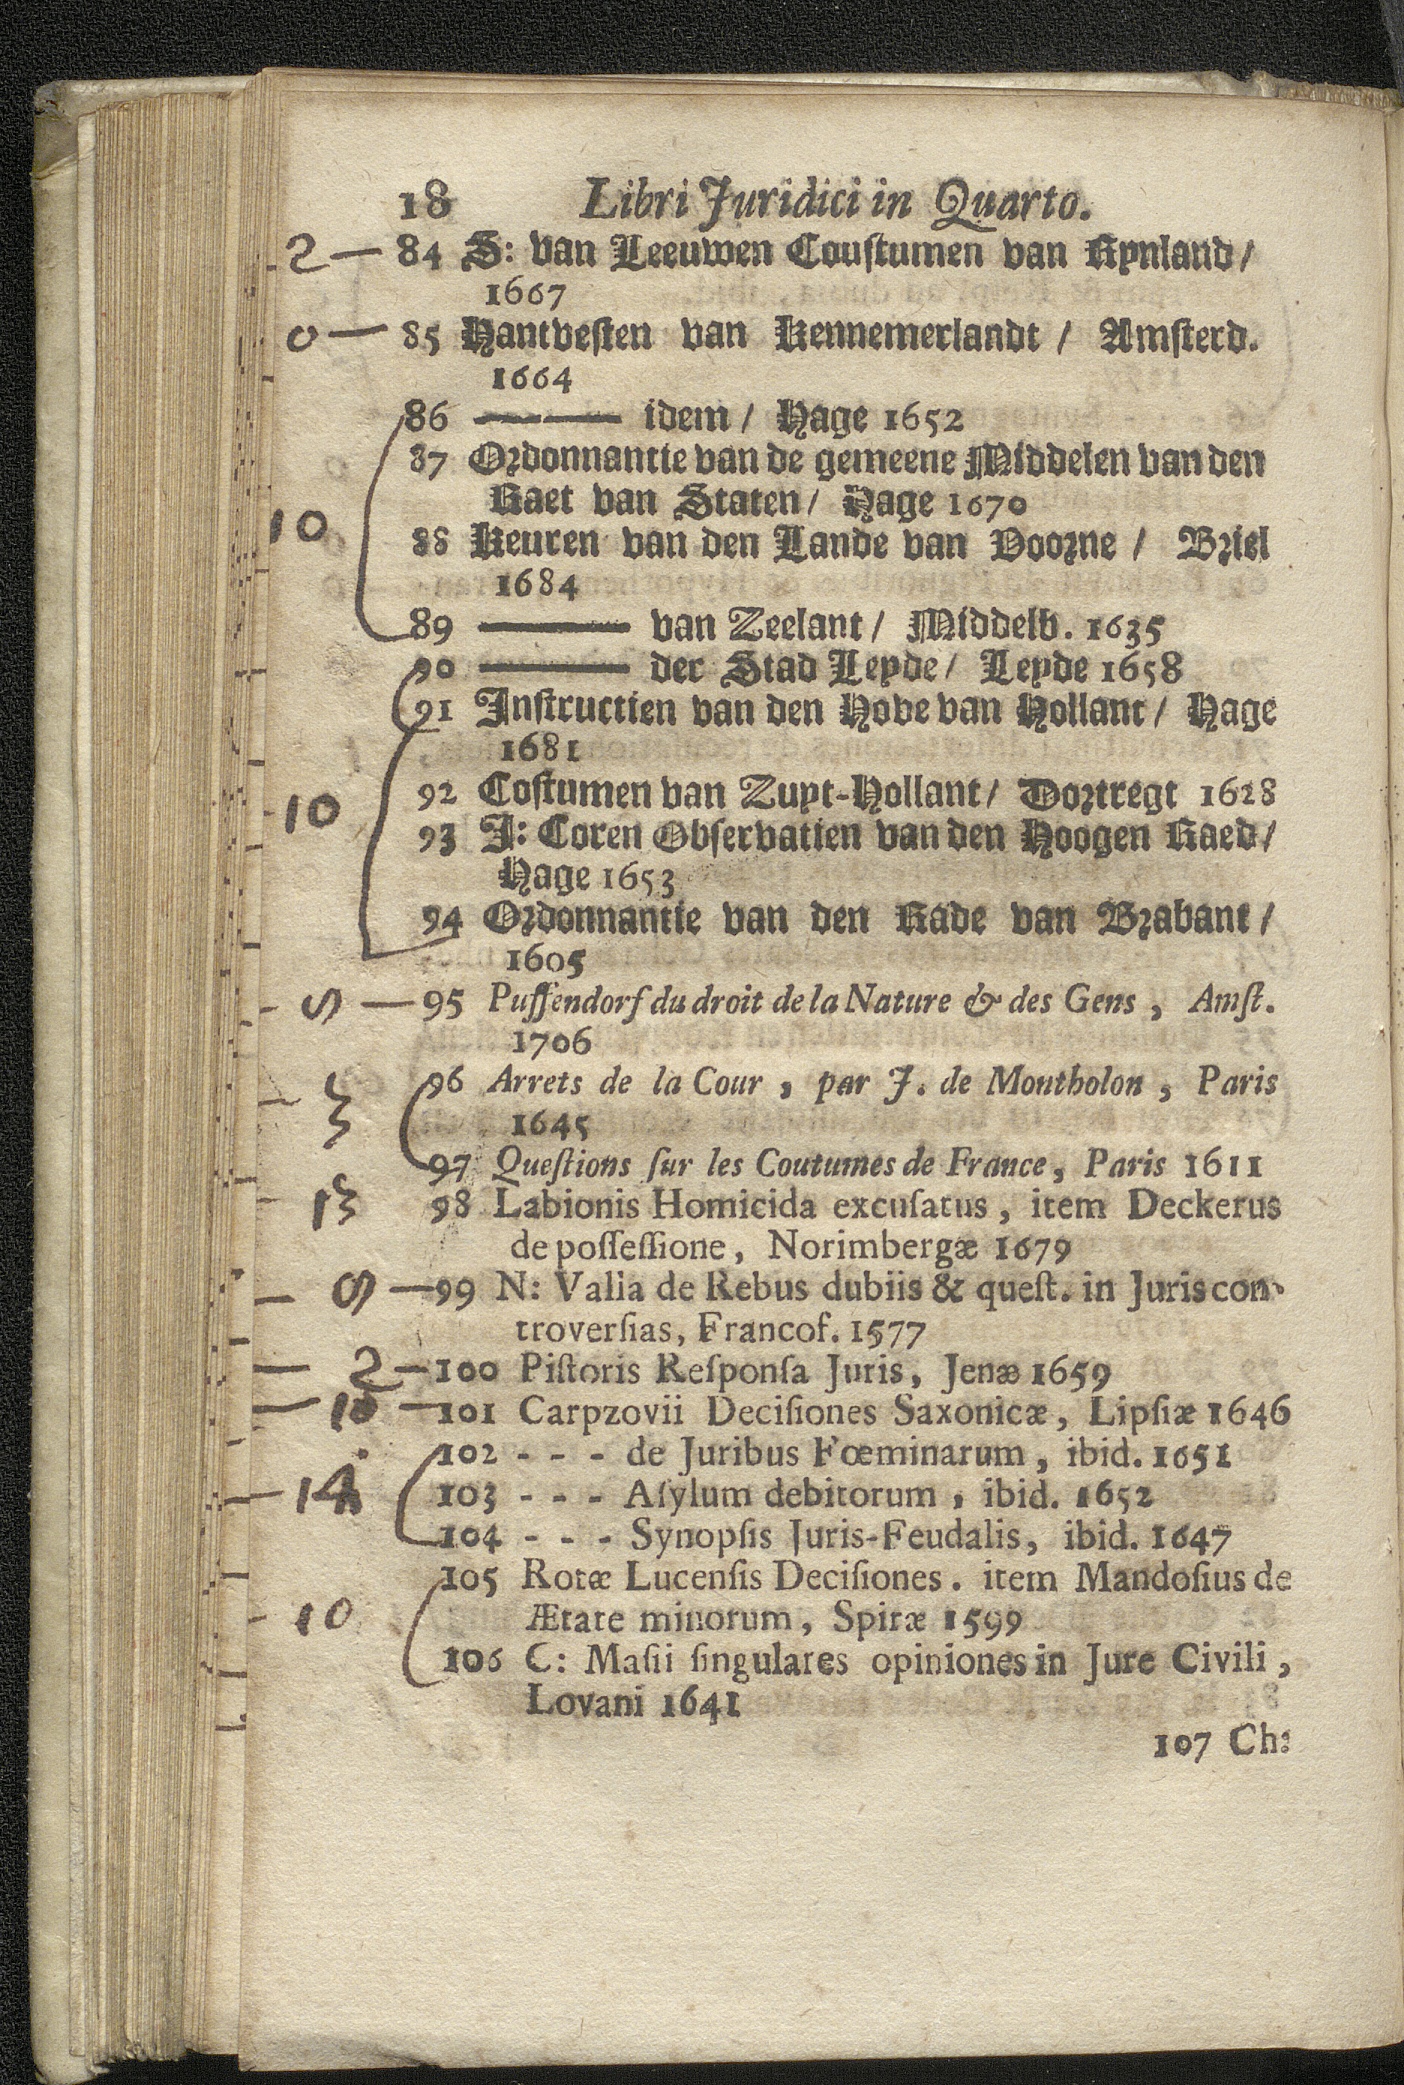 18 Libri Juridici in Quarto.
2 — 84 S: van Leeuwen Coustumen van Rynland /
1667
0 — 85 Hantvesten van Kennemerlandt / Amsterd.
1664
86 ——— idem / Hage 1652
87 Ordonnantie van de gemeene Middelen van den
Raet van Staten / Hage 1670
10
88 Keuren van den Lande van Voorne / Briel
1684
89 ——— van Zeelant / Middelb. 1635
90 ——— der Stad Leyde / Leyde 1658
91 Instructien van den Hove van Hollant / Hage
1681
92 Costumen van Zuyt-Hollant / Dortregt 1628
10
93 J: Coren Observatien van den Hoogen Raed /
Hage 1653
94 Ordonnantie van den Rade van Brabant /
1605
— 95 Puffendorf du droit de la Nature & des Gens, Amſt.
1706
96 Arrets de la Cour, par J. de Montholon, Paris
3
1645
97 Queſtions ſur les Coutumes de France, Paris 1611
13 98 Labionis Homicida excuſatus, item Deckerus
de poſſeſſione, Norimbergæ 1679
— 99 N: Valla de Rebus dubiis & queſt. in Juris con-
troverſias, Francof. 1577
2 — 100 Piſtoris Reſponſa Juris, Jenæ 1659
— 101 Carpzovii Deciſiones Saxonicæ, Lipſiæ 1646
102 - - - de Juribus Fœminarum, ibid. 1651
14 103 - - - Aſylum debitorum, ibid. 1652
104 - - - Synopſis Juris-Feudalis, ibid. 1647
105 Rotæ Lucenſis Deciſiones. item Mandoſius de
10 Ætate minorum, Spiræ 1599
106 C: Maſii ſingulares opiniones in Jure Civili,
Lovani 1641
107 Ch: